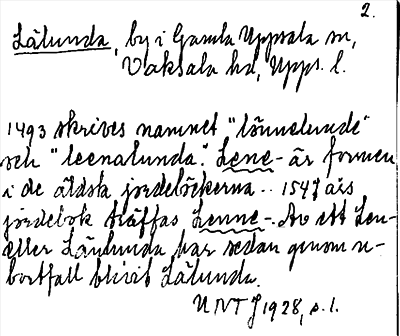 2.
Lälunda, by i Gamla Uppsala sn,
Vaksala hd, Upps. l.
1493 skrives namnet "lönnelunde"
och "leenalunda". Lene- är formen
i de äldsta jordeböckerna .. 1547 års
jordebok träffas Lenne-. Av ett Len-
eller Länlunda har sedan genom n-
bortfall blivit Lälunda.
UNT 1928, s. 1.